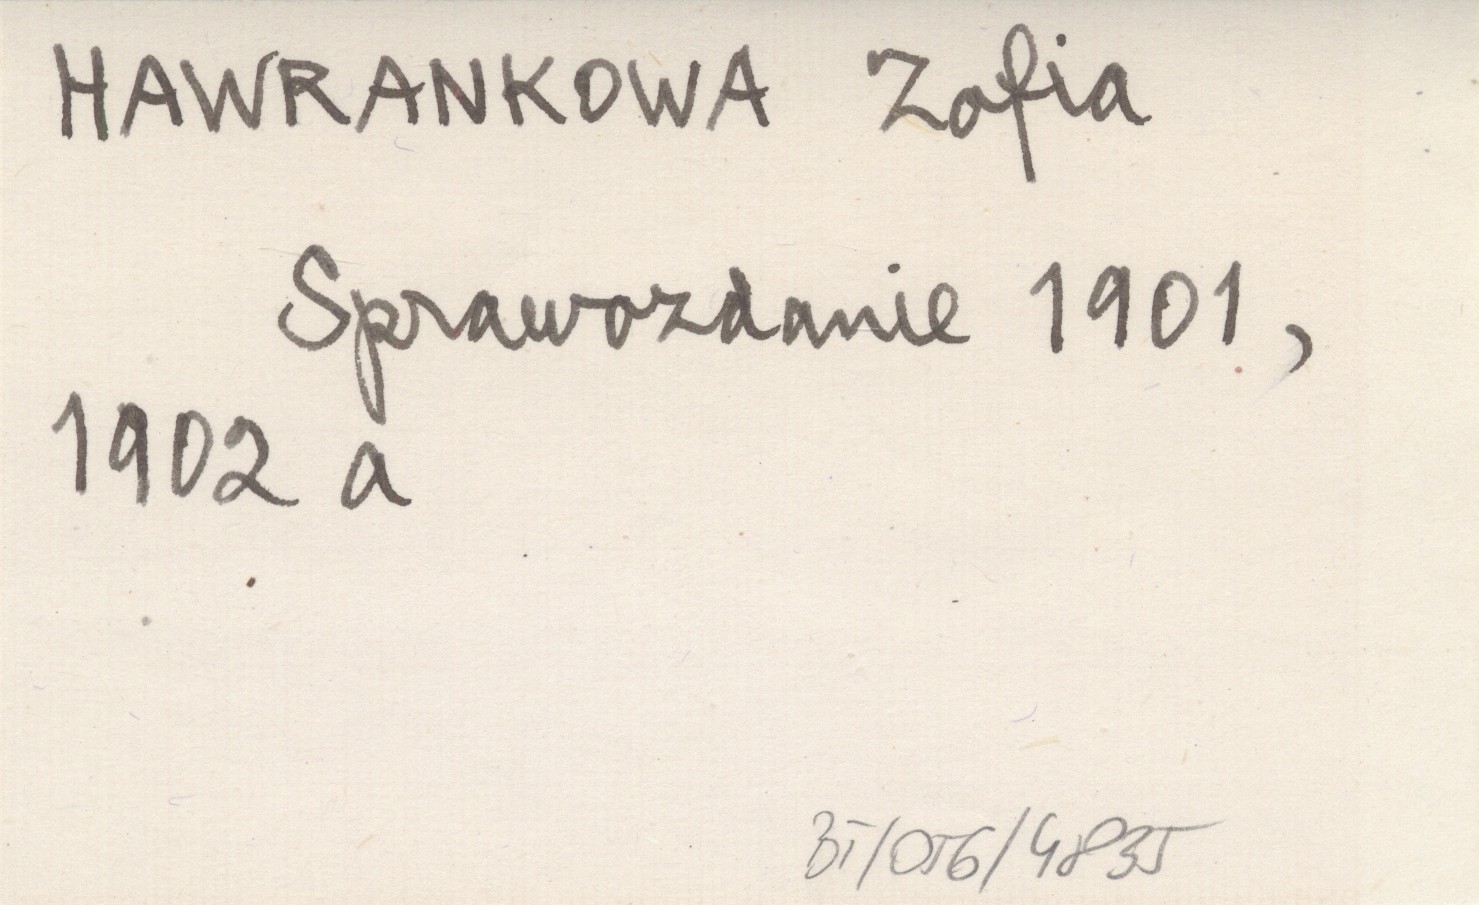 HAWRANKOWA Zofia
Sprawozdanie 1901,
1902 a
BI/056/4835